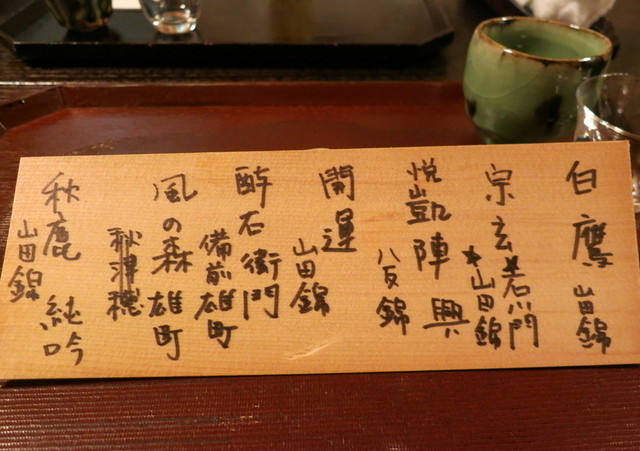 白鷹 山田錦
宗玄 若川門
山田錦
悦凱陣 興
八反錦
開運
山田錦
酔右衛門
備前雄町
風の森 雄町
秋津穂
秋鹿 純吟
山田錦